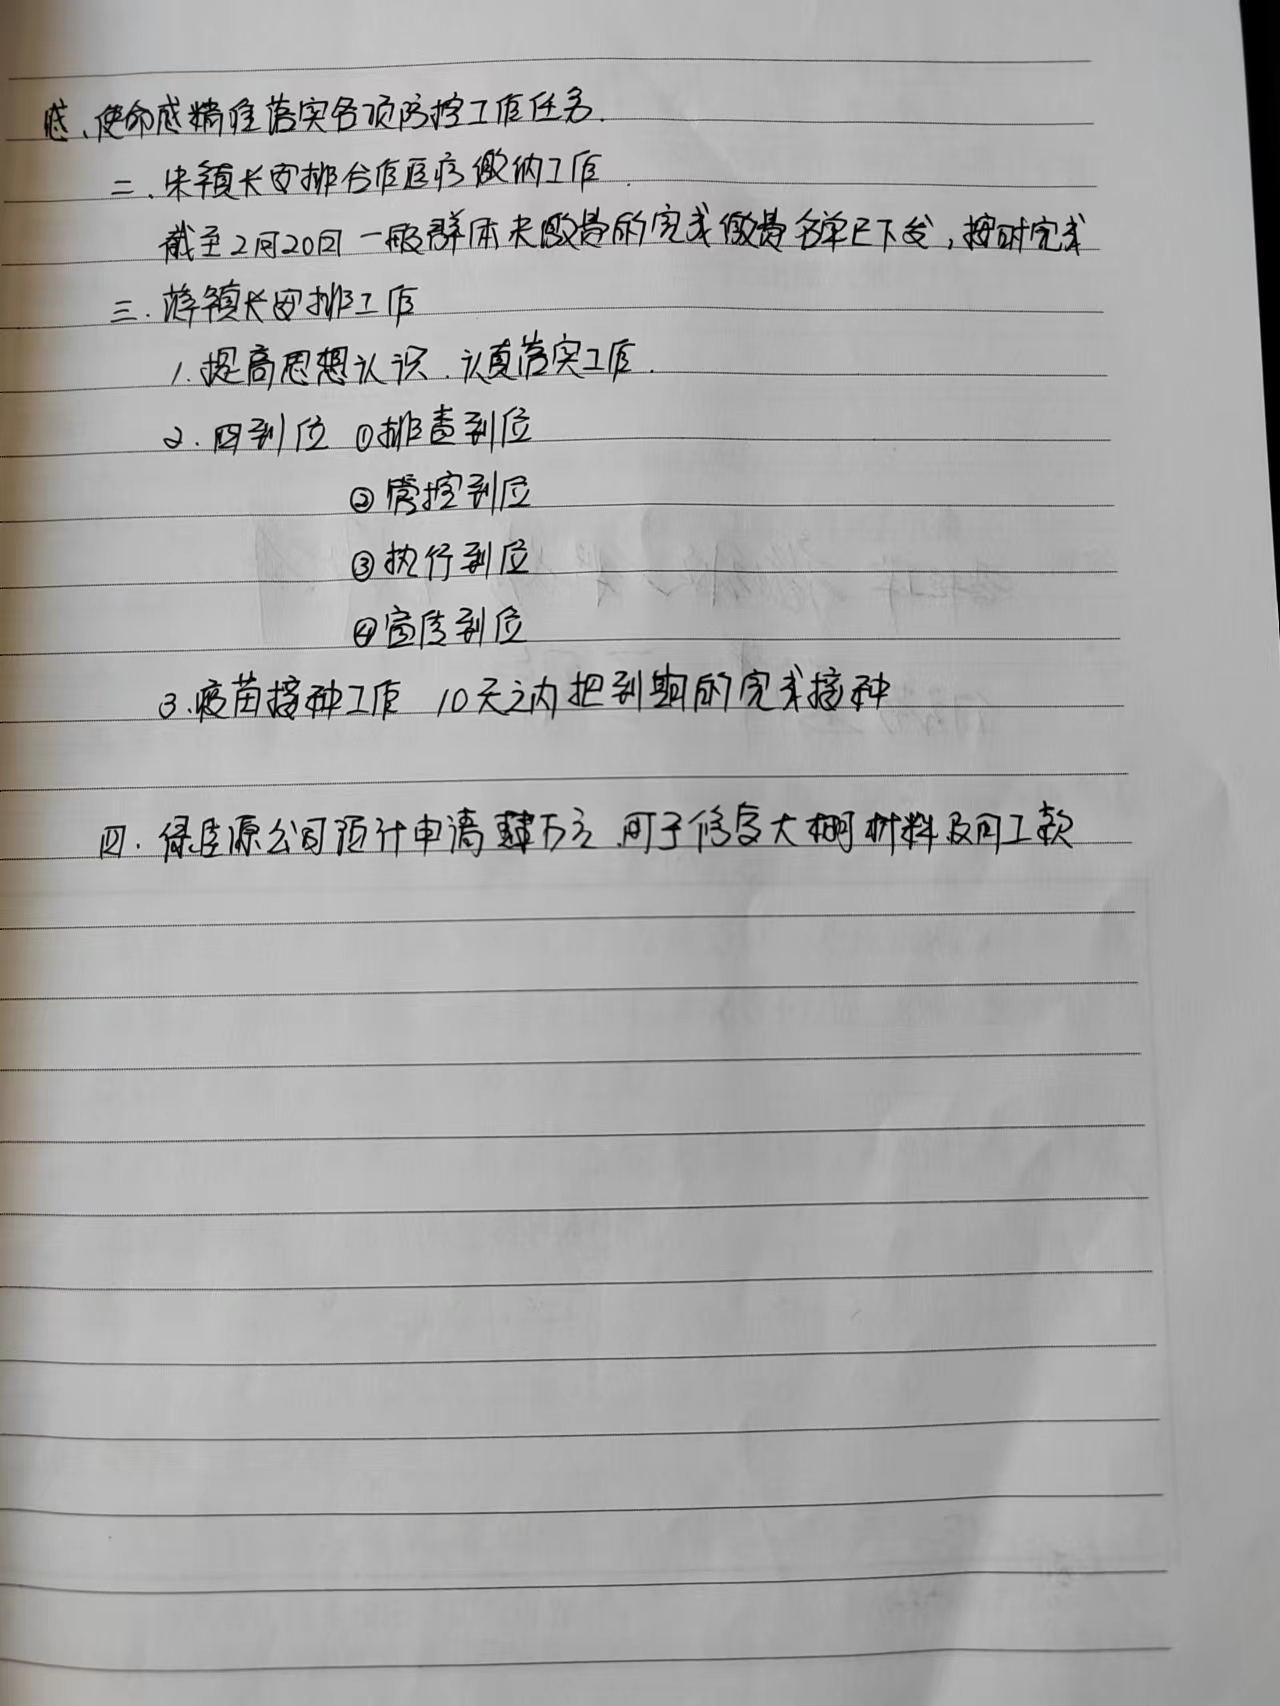 感、使命感精准落实各项防控工作任务.
二.朱镇长安排合作医疗缴纳工作.
截至2月20日一般群体未缴费的完成缴费名单已下发,按时完成
三.蒋镇长安排工作
1.提高思想认识.认真落实工作.
2.四到位 ①排查到位
②管控到位
③执行到位
④宣传到位
3.疫苗接种工作 10天之内把到期的完成接种
四.绿 源公司预计申请 万元.用于修复大棚材料及 工款